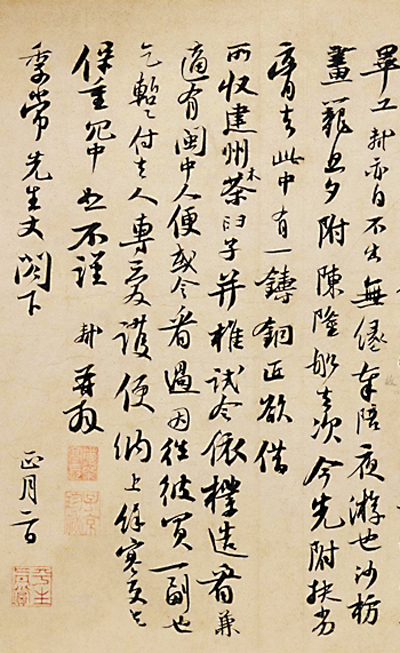 畢工軾亦自不出無緣奉陪夜游也沙枋
畫籠旦夕附陳隆船去次今先附扶劣
膏去此中有一鑄銅匠欲借
所收建州木茶臼子并椎試令依樣造看兼
適有閩中人便或令看過因往彼買一副也
乞暫付去人專愛護便納上餘寒更乞
保重冗中恕不謹 軾 再拜
季常先生丈閤下
正月二日